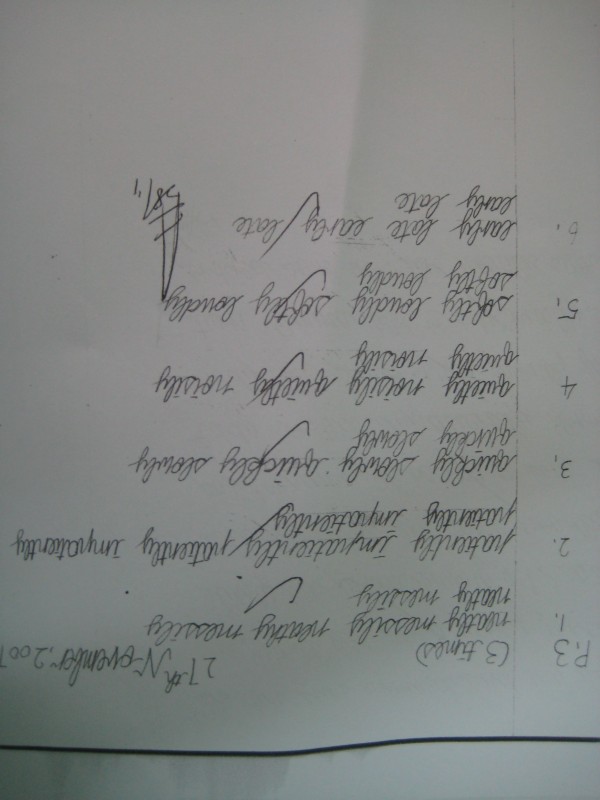 P.3 (3 times) 27th November. 2007
1. neatly messily neatly messily
neatly messily
2. patiently impatiently patiently impatiently
patiently impatiently
3, quickly slowly quickly slowly
quickly slowly
4 quietly noisily quietly noisily
quietly noisily
5, softly loudly softly loudly
softly loudly
6. early late early late
early late